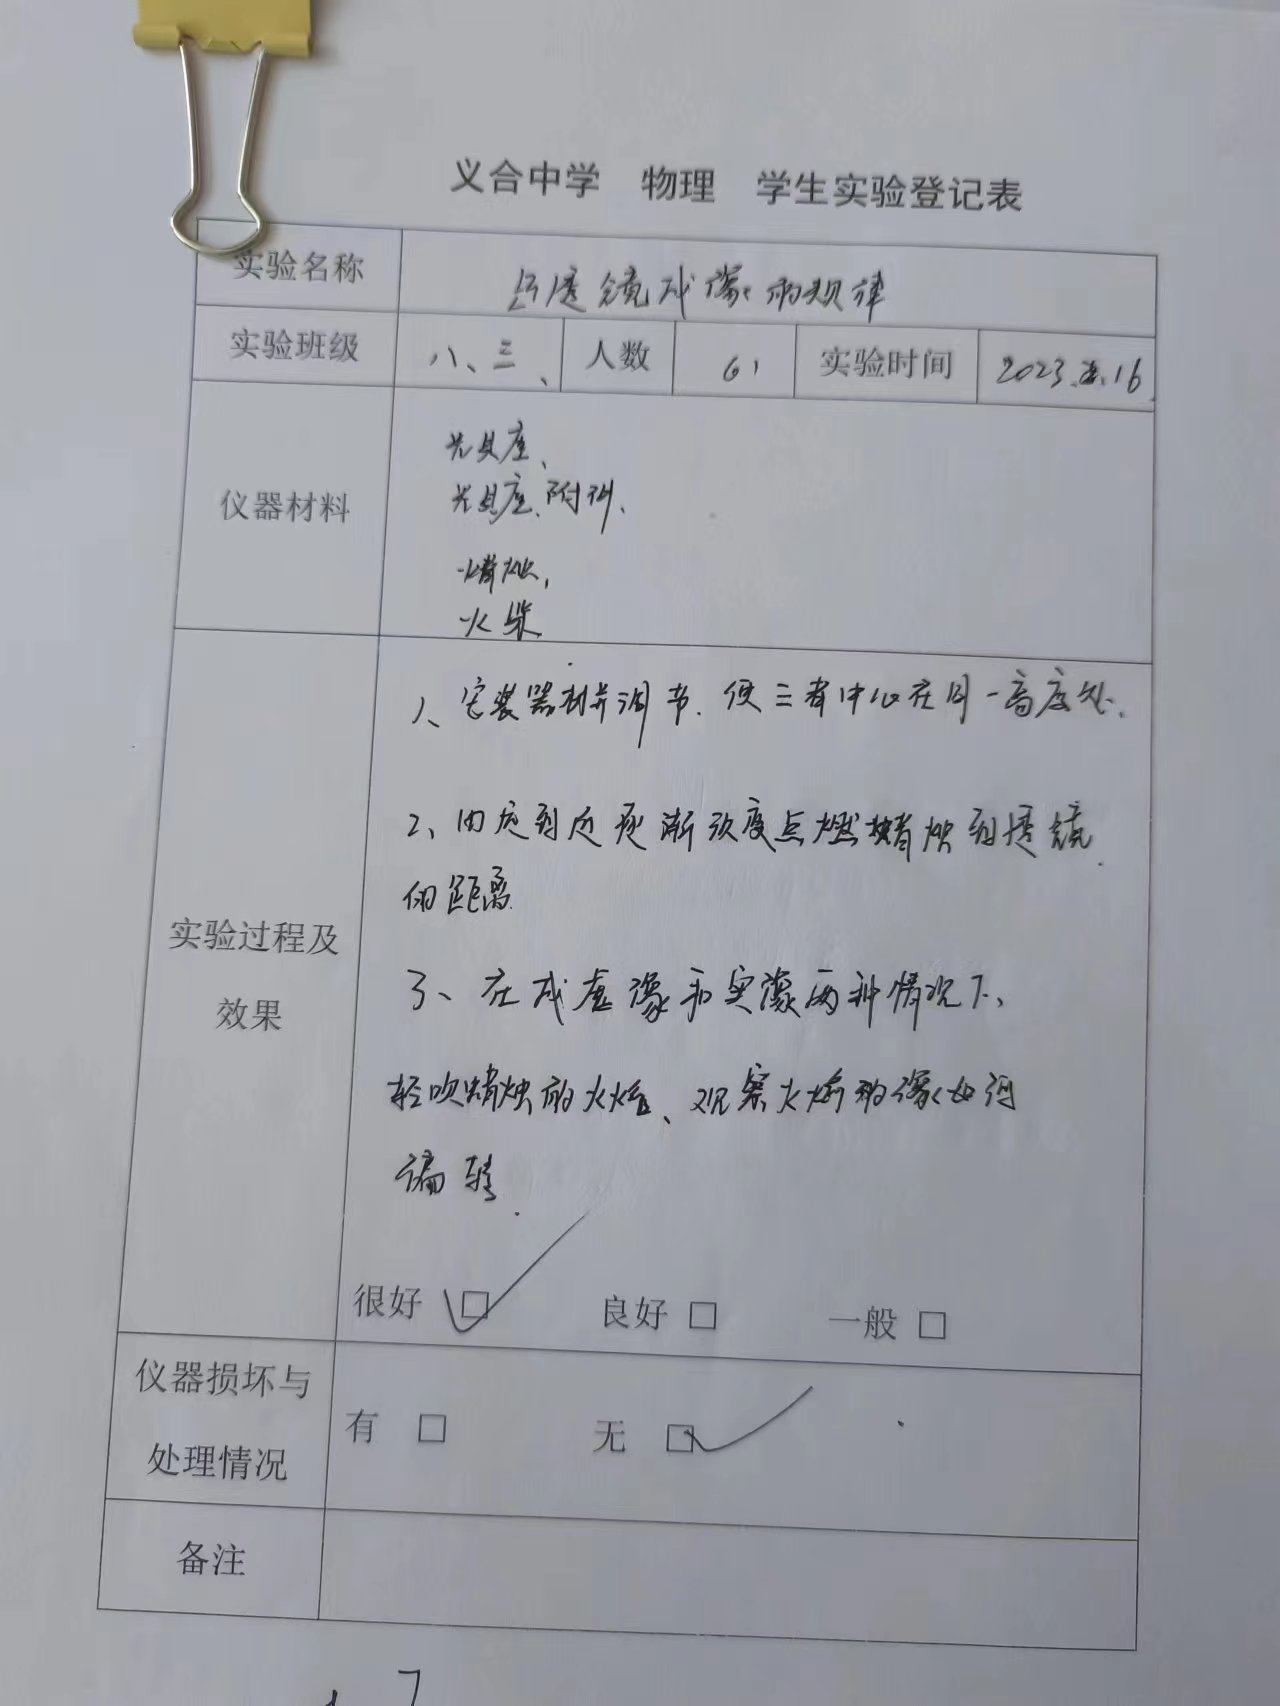 义合中学 物理 学生实验登记表
实验名称 凸透镜成像的规律
实验班级 八、三、 人数 61 实验时间 2023. .16
仪器材料
光具座、
光具座、附件、
蜡烛,
火柴
1、安装器材并调节.使三者中心在同一高度处.
2、由远到近逐渐改变点燃蜡烛到透镜
的距离.
3、在成虚像和实像两种情况下、
轻吹蜡烛的火焰、观察火焰的像如何
偏转.
实验过程及
效果
很好 □ 良好 □ 一般 □
仪器损坏与
处理情况
有 □ 无 □
备注